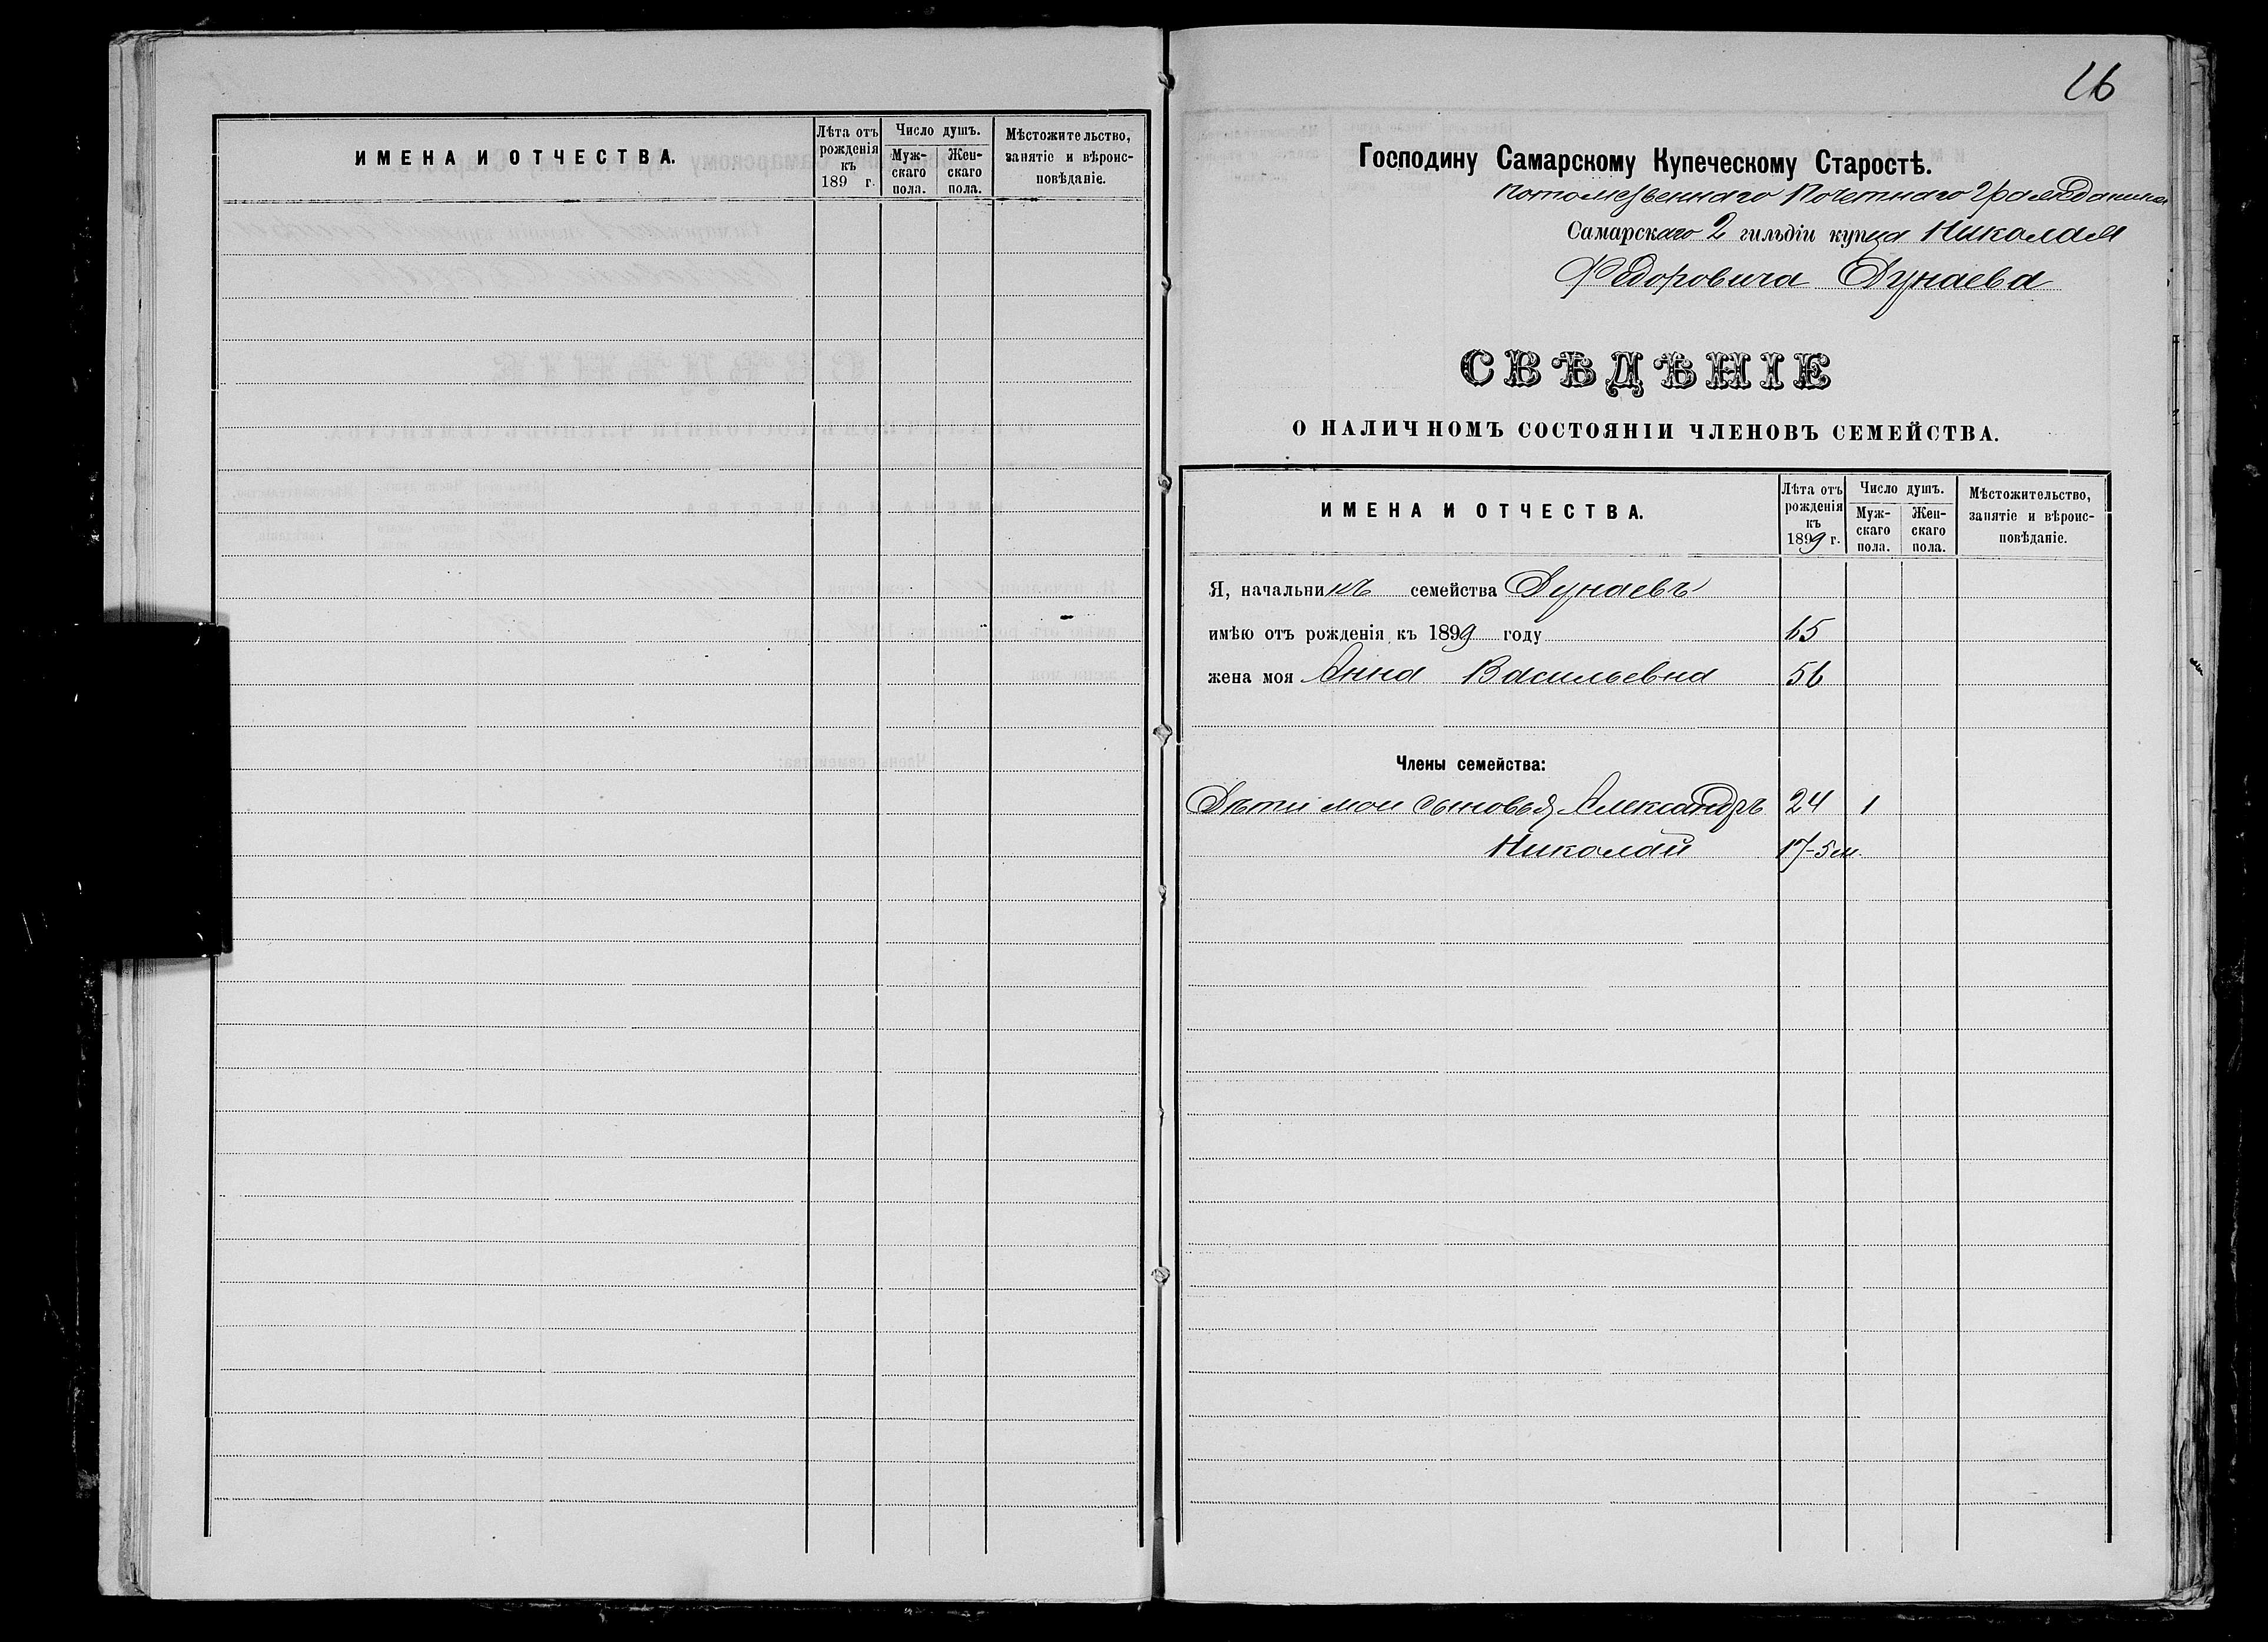 ИМЕНА И ОТЧЕСТВА.
Лѣта отъ рожденія къ 189 г.
Число душъ.
Мужскаго пола.
Женскаго пола.
Мѣстожительство, занятіе и вѣроисповѣданіе.
26
Господину Самарскому Купеческому Старостѣ.
Потомственнаго Почетнаго Гражданина
Самарскаго 2 гильдіи купца Николая
Федоровича Дунаева
СВѢДѢНІЕ
О НАЛИЧНОМЪ СОСТОЯНІИ ЧЛЕНОВЪ СЕМЕЙСТВА.
ИМЕНА И ОТЧЕСТВА.
Лѣта отъ рожденія къ 1899 г.
Число душъ.
Мужскаго пола.
Женскаго пола.
Мѣстожительство, занятіе и вѣроисповѣданіе.
Я, начальникъ семейства Дунаевъ
имѣю отъ рожденія къ 1899 году 65
жена моя Анна Васильевна 56
Члены семейства:
Дѣти мои сыновья Александръ 24 1
Николай 17-5 м.